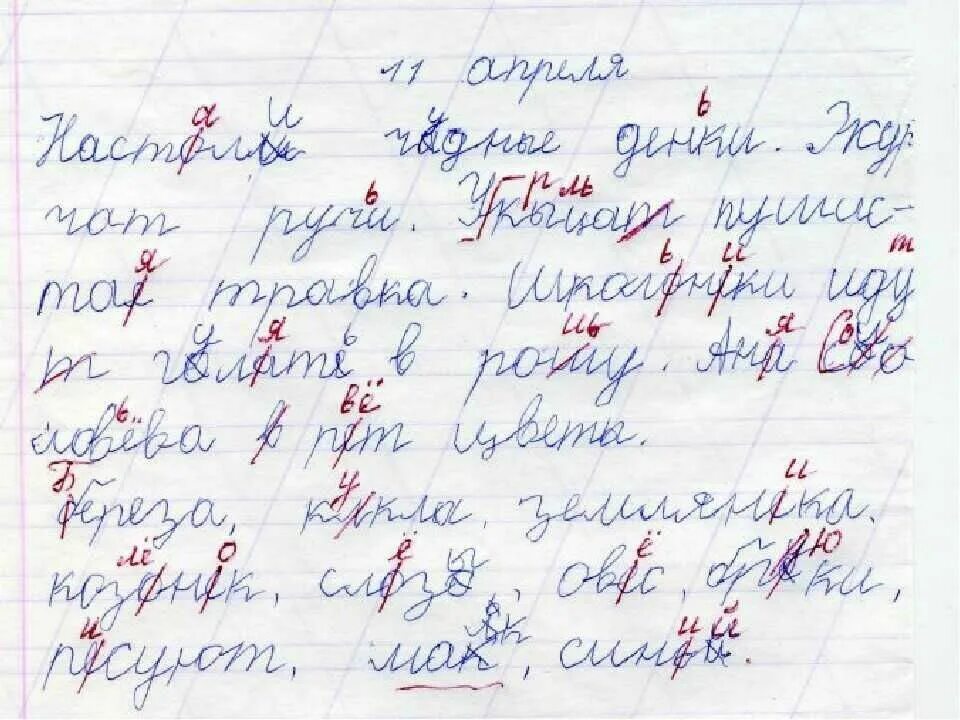 11 апреля
Настоли чудные денки. Жур
чат ручи. Укыцат пушис-
тая травка. Шкагники иду
т гуляте в рошу. Аня Со
ловёва в пёт цветы.
береза, кукла, земляника.
козлёнок, слёзы, овёс, брюки,
рисуют, мак, синий.